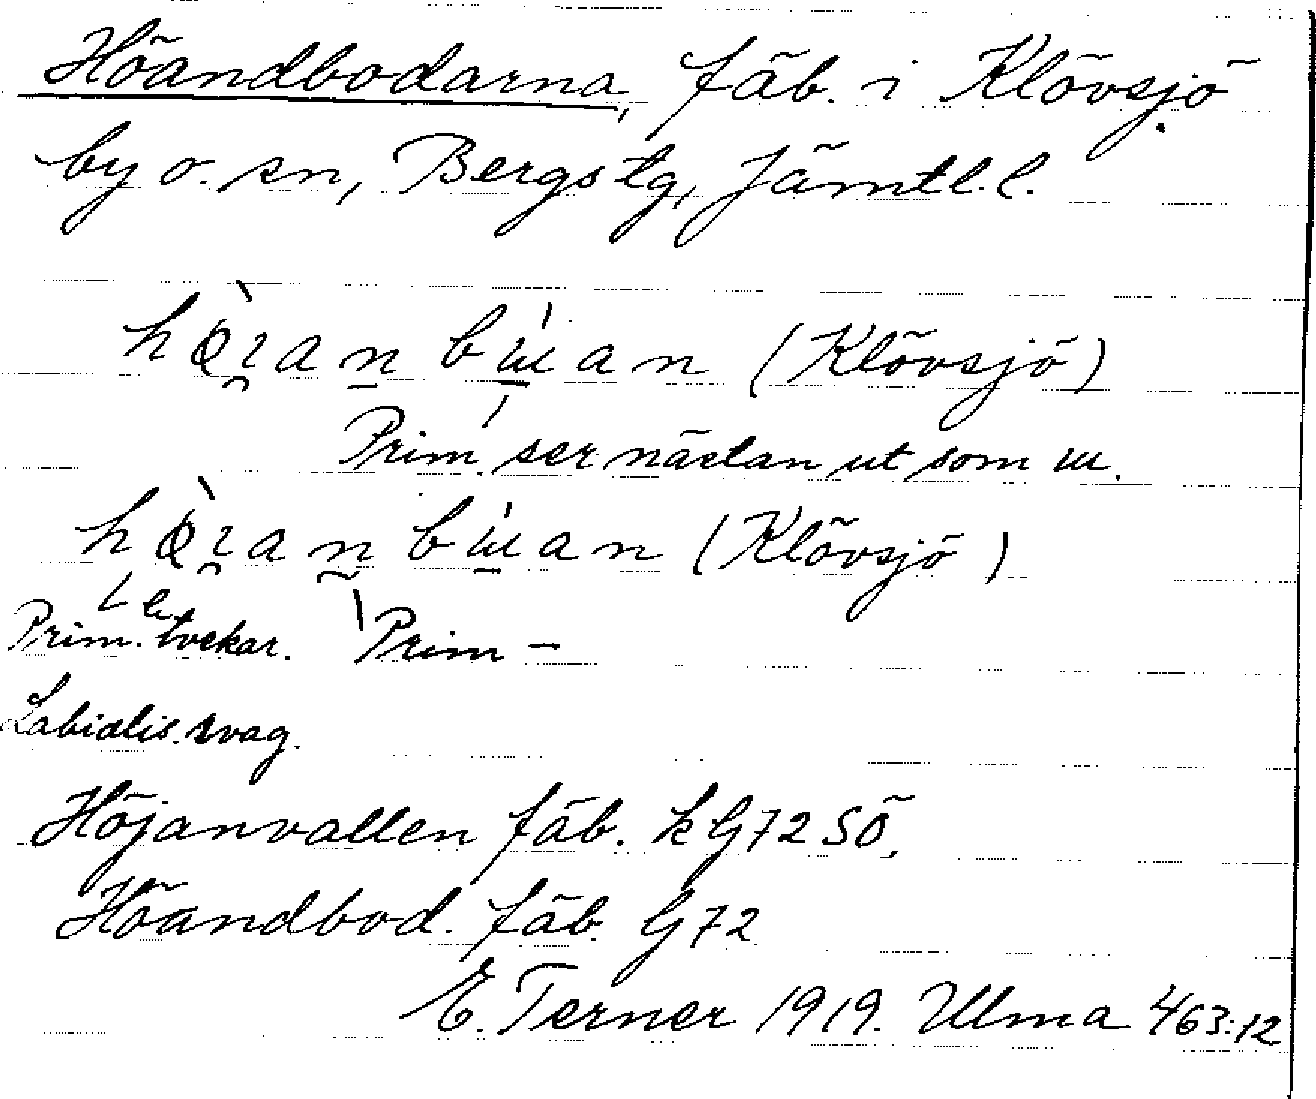 Höandbodarna, fäb. i Klövsjö
by o. sn, Bergs tg, Jämtl. l.
(Klövsjö)
Prim. ser nästan ut som ɯ.
(Klövsjö)
Prim. tvekar. Prim –
Labialis. svag.
Höjanvallen fäb. k G72 SÖ.
Höandbod. fäb. G72
E. Terner 1919. Ulma 463:12